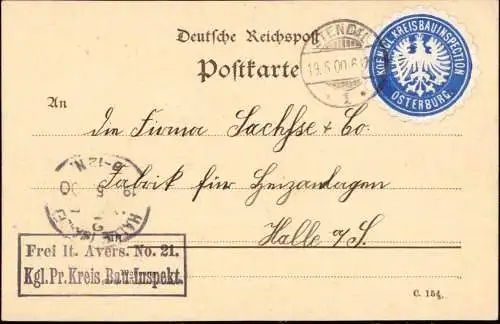 Deutsche Reichspost
Postkarte
STENDAL
19.5.00.6-
KOENIGL. KREISBAUINSPECTION
OSTERBURG.
An
die Firma Sachsse & Co.
Fabrik für Heizanlagen
Halle a/S.
8-12 N.
19 5 00
HALLE
Frei lt. Avers. No. 21.
Kgl. Pr. Kreis Bau-Inspekt.
C. 154.